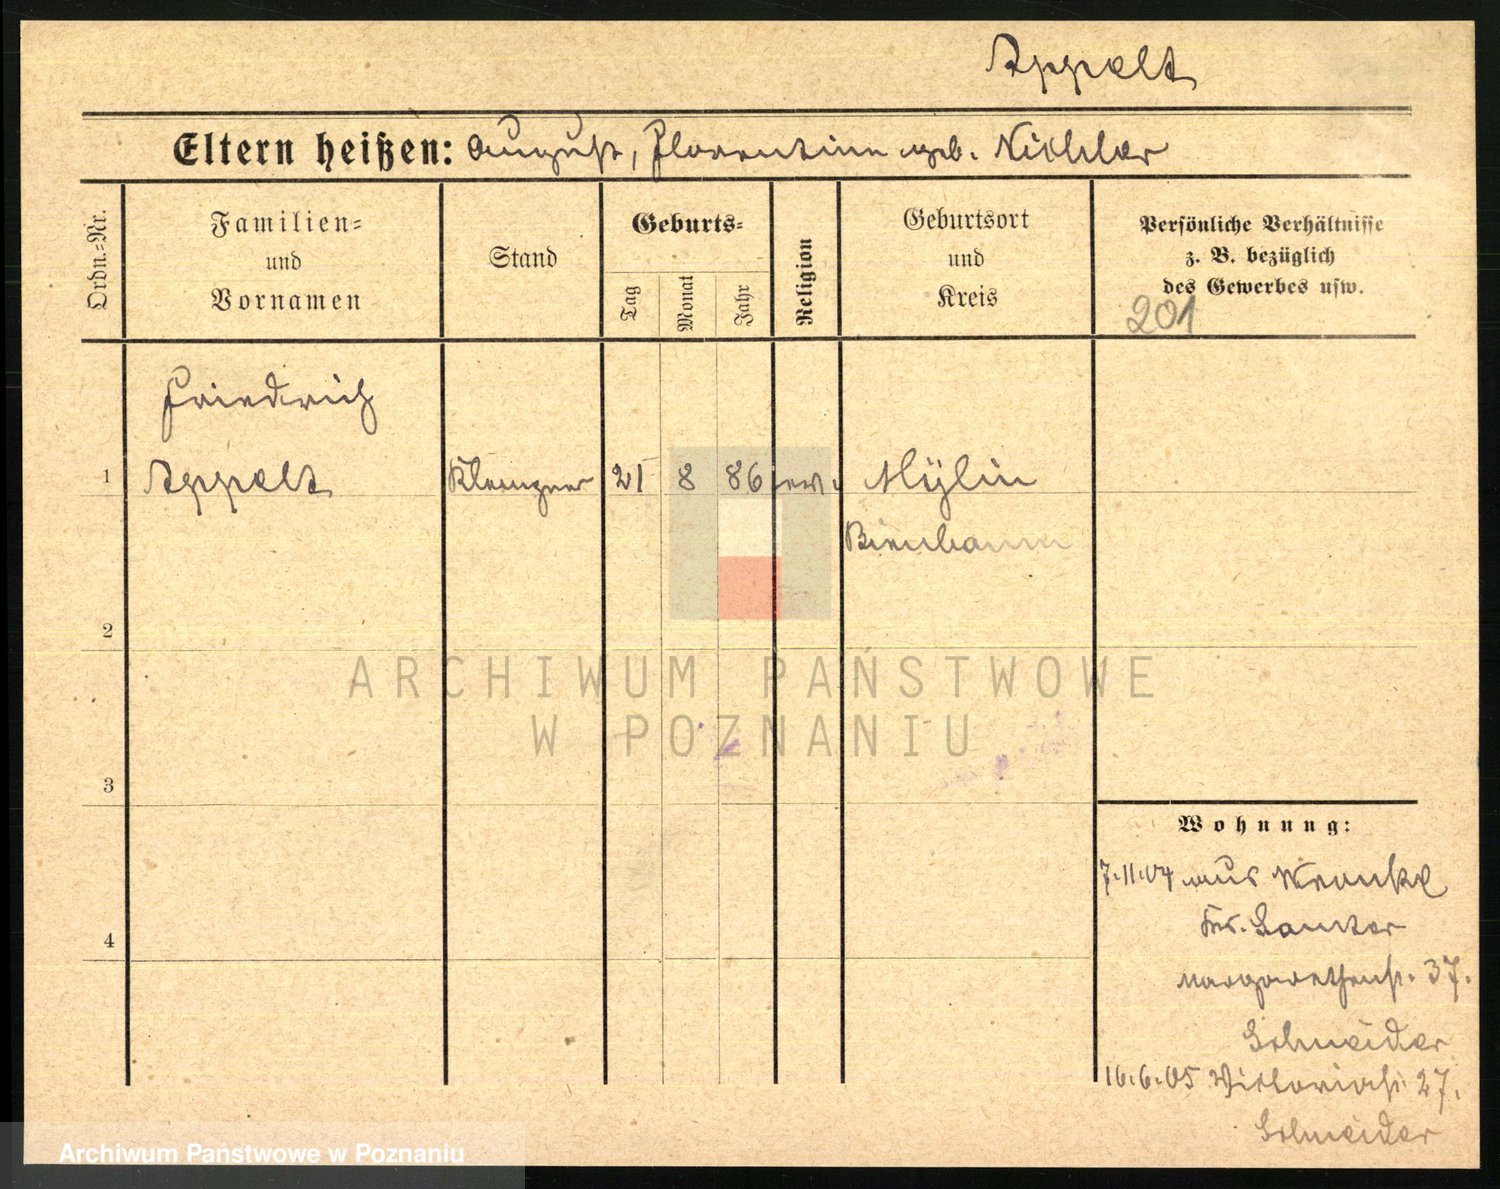 Appelt
Eltern heißen: August, Florentine geb. Nickler
Ordn.-Nr.
Familien-
und
Vornamen
Stand
Geburts-
Tag
Monat
Jahr
Religion
Geburtsort
und
Kreis
Persönliche Verhältnisse
z. B. bezüglich
des Gewerbes usw.
201
Friedrich
1 Appelt Klempner 21 8 86 ev. Mylin
Birnbaum
2
3
4
Wohnung:
7.11.04 aus Wronke
Krs. Samter
Margarethenstr. 37.
Schneider
16.6.05 Victoriastr. 27.
Schneider
ARCHIWUM PAŃSTWOWE
W POZNANIU
Archiwum Państwowe w Poznaniu